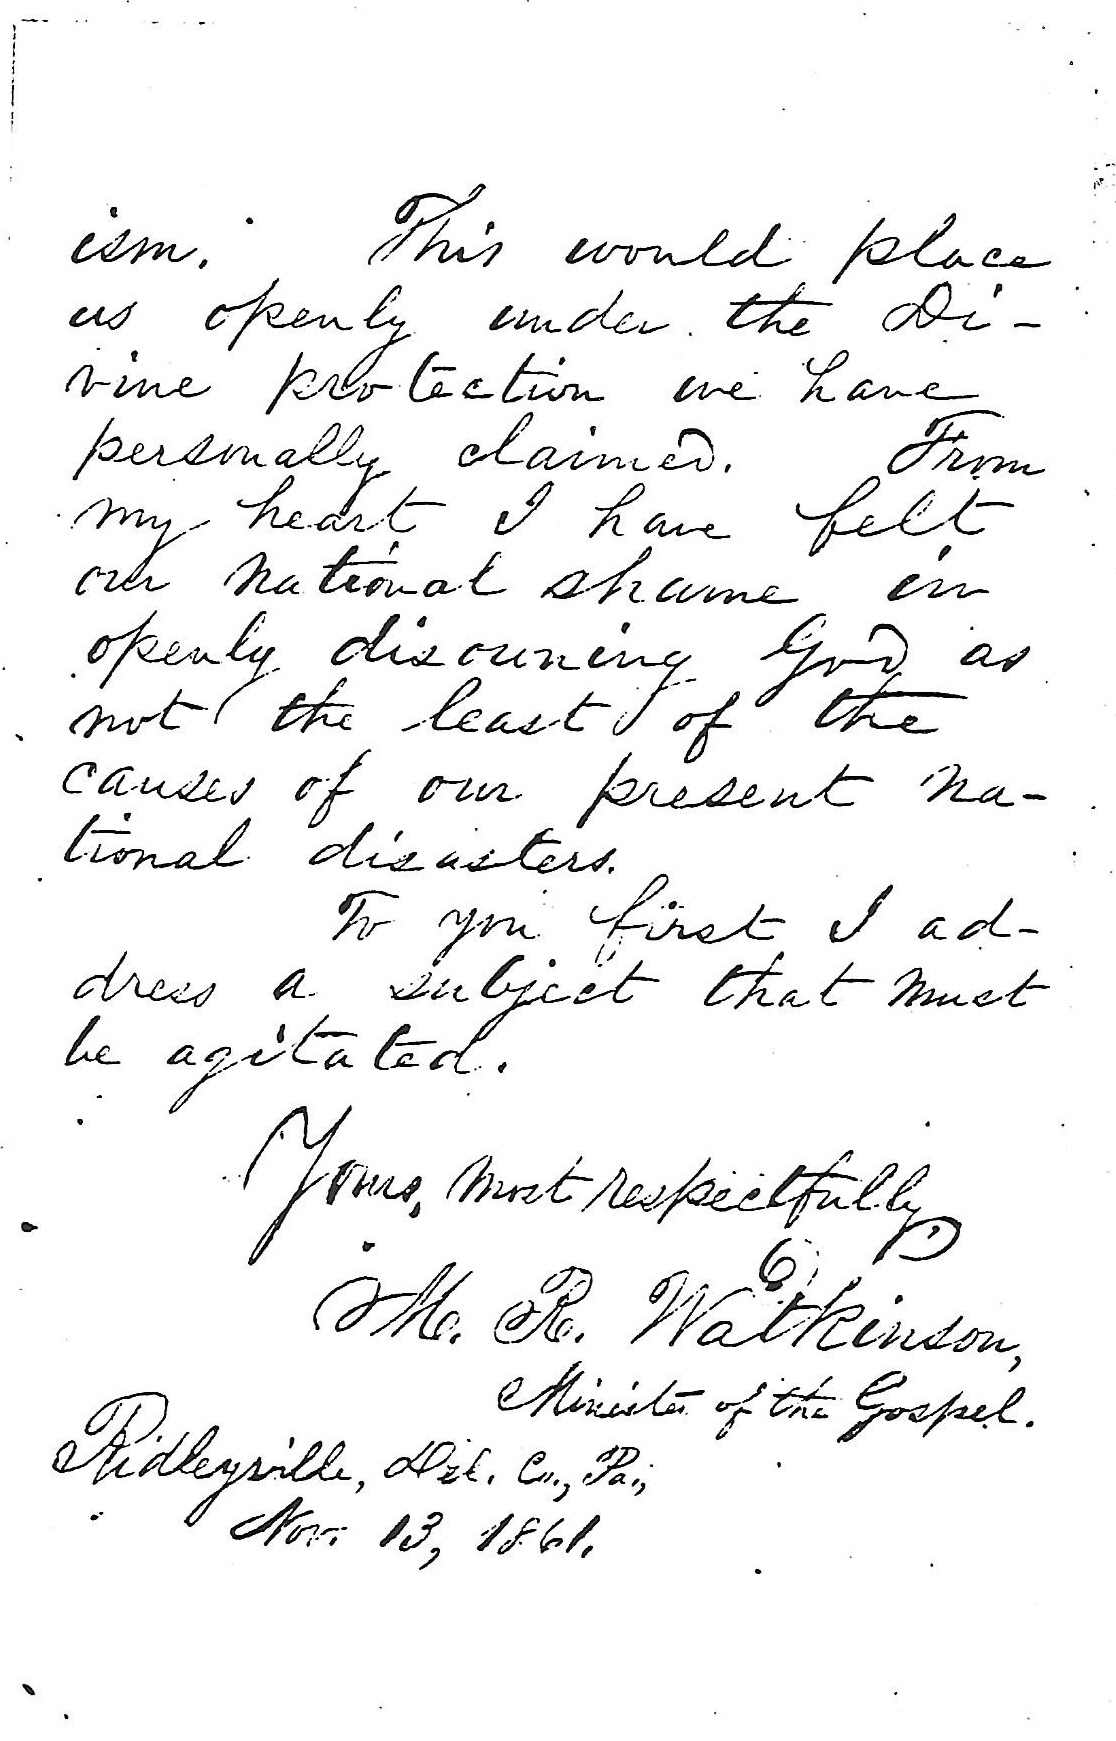 ism. This would place
us openly under the Di-
vine protection we have
personally claimed. From
my heart I have felt
our national shame in
openly disowning God as
not the least of the
causes of our present na-
tional disasters.
To you first I ad-
dress a subject that must
be agitated.
Yours, most respectfully
M. R. Watkinson,
Minister of the Gospel.
Ridleyville, Del. Co., Pa.,
Nov. 13, 1861.